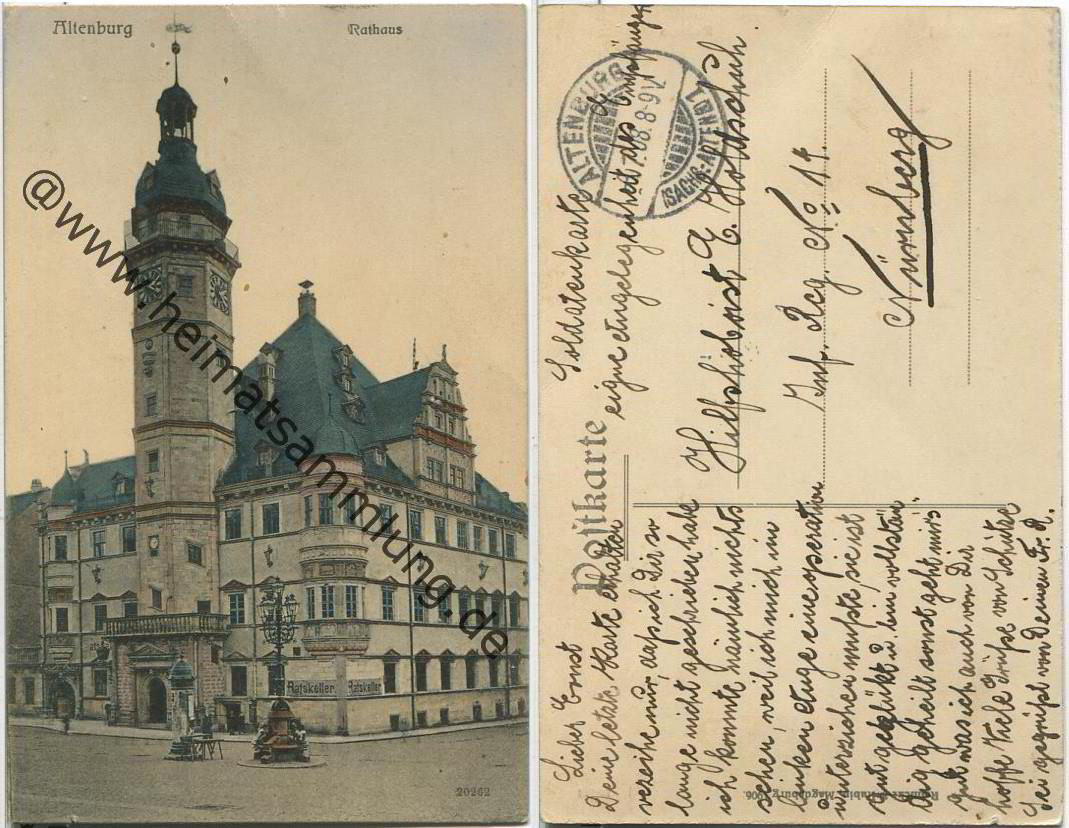 Altenburg
Rathaus
@www.heimatsammlung.de
Ratskeller
Ratskeller
20262
Soldatenkarte
eigne Angelegenheit des Empfängers
Postkarte
ALTENBURG
8-9V.
(SACHS.-ALTENB.) 1
Hilfshobist E. Holdschuh
Inf. Reg. No. 14.
Nürnberg
Lieber Ernst
Deine letzte Karte erhalten
verzeihe nur, daß ich Dir so
lange nicht geschrieben habe
ich konnte nämlich nichts
sehen, weil ich mich im
linken Auge eine operation
unterziehen mußte sie ist
gut geglückt u. bin vollstän
dig geheilt sonst geht mir's
gut was ich auch von Dir
hoffe Viele Grüße von Schütze
Sei gegrüßt von Deinem Fr. R.
Magdeburg 1906.